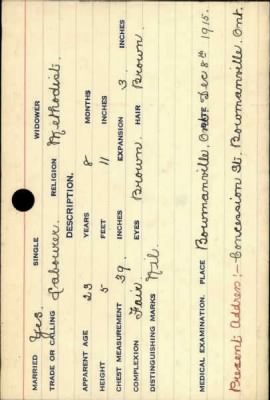 MARRIED Yes. SINGLE WIDOWER
TRADE OR CALLING Labourer. RELIGION Methodist.
DESCRIPTION.
APPARENT AGE 23 YEARS 8 MONTHS
HEIGHT 5 FEET 11 INCHES
CHEST MEASUREMENT 39. INCHES EXPANSION 3 INCHES
COMPLEXION Fair EYES Brown. HAIR Brown.
DISTINGUISHING MARKS Nil.
MEDICAL EXAMINATION. PLACE Bowmanville, Ont. Dec 8th 1915.
Present Address:- Concession St. Bowmanville. Ont.